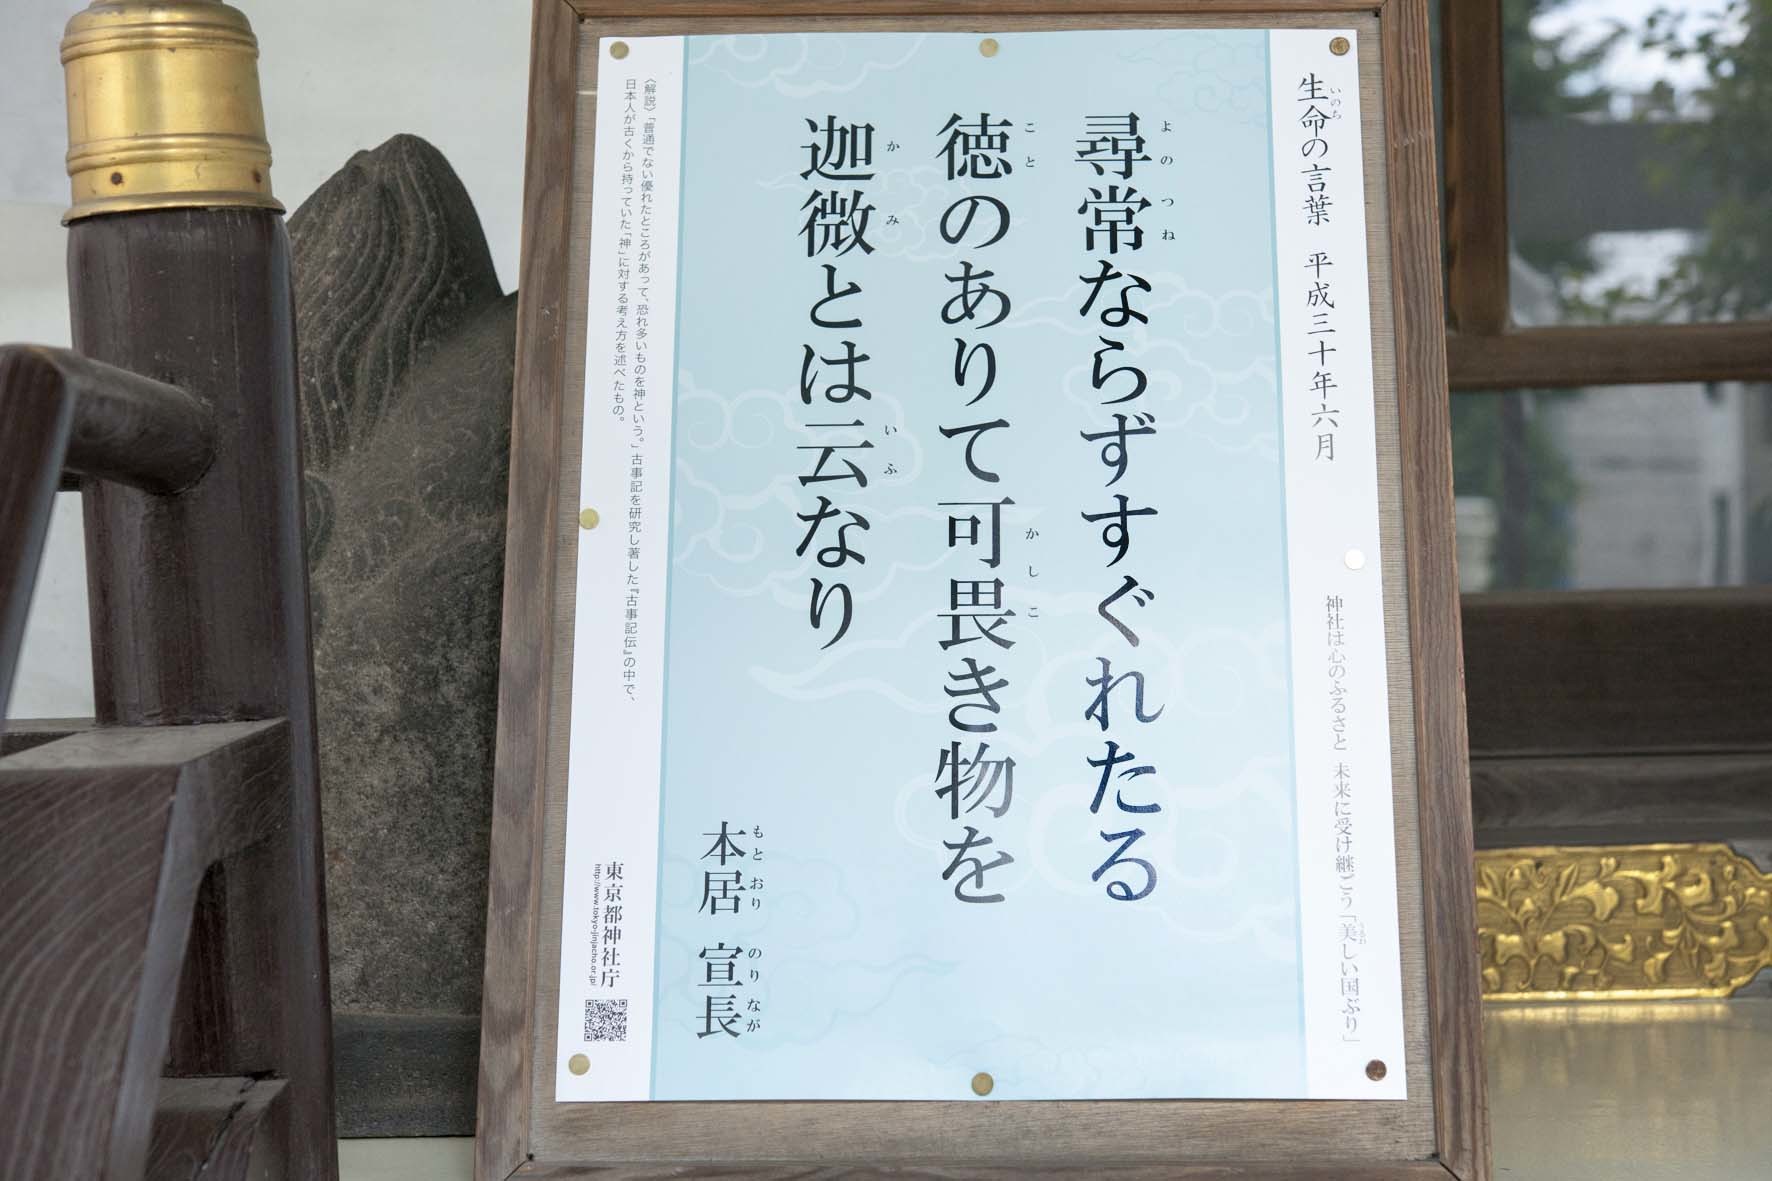 生命の言葉 平成三十年六月
いのち
神社は心のふるさと 未来に受け継ごう「美しい国ぶり」
うるわ
尋常ならずすぐれたる
よのつね
徳のありて可畏き物を
こと かしこ
迦微とは云なり
かみ いふ
本居 宣長
もとおり のりなが
〈解説〉「普通でない優れたところがあって、恐れ多いものを神という。」古事記を研究し著した『古事記伝』の中で、
日本人が古くから持っていた「神」に対する考え方を述べたもの。
東京都神社庁
http://www.tokyo-jinjacho.or.jp/